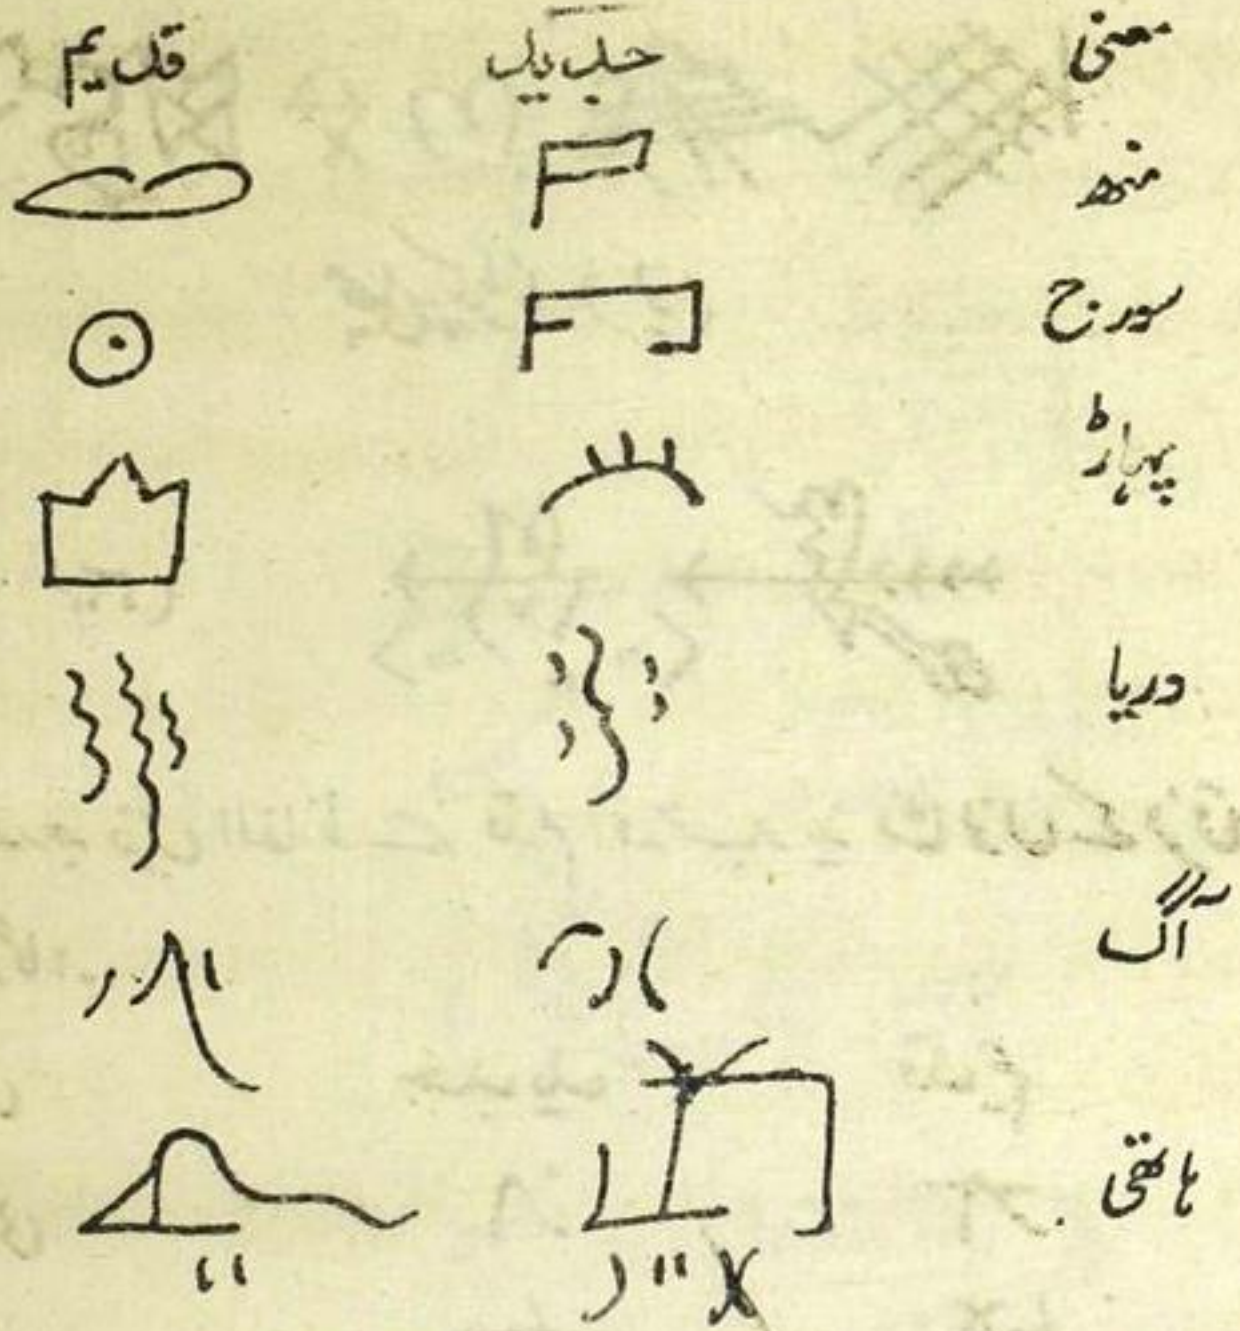 معنی جدید قدیم
منھ
سورج
پہاڑ
دریا
آگ
ہاتھی